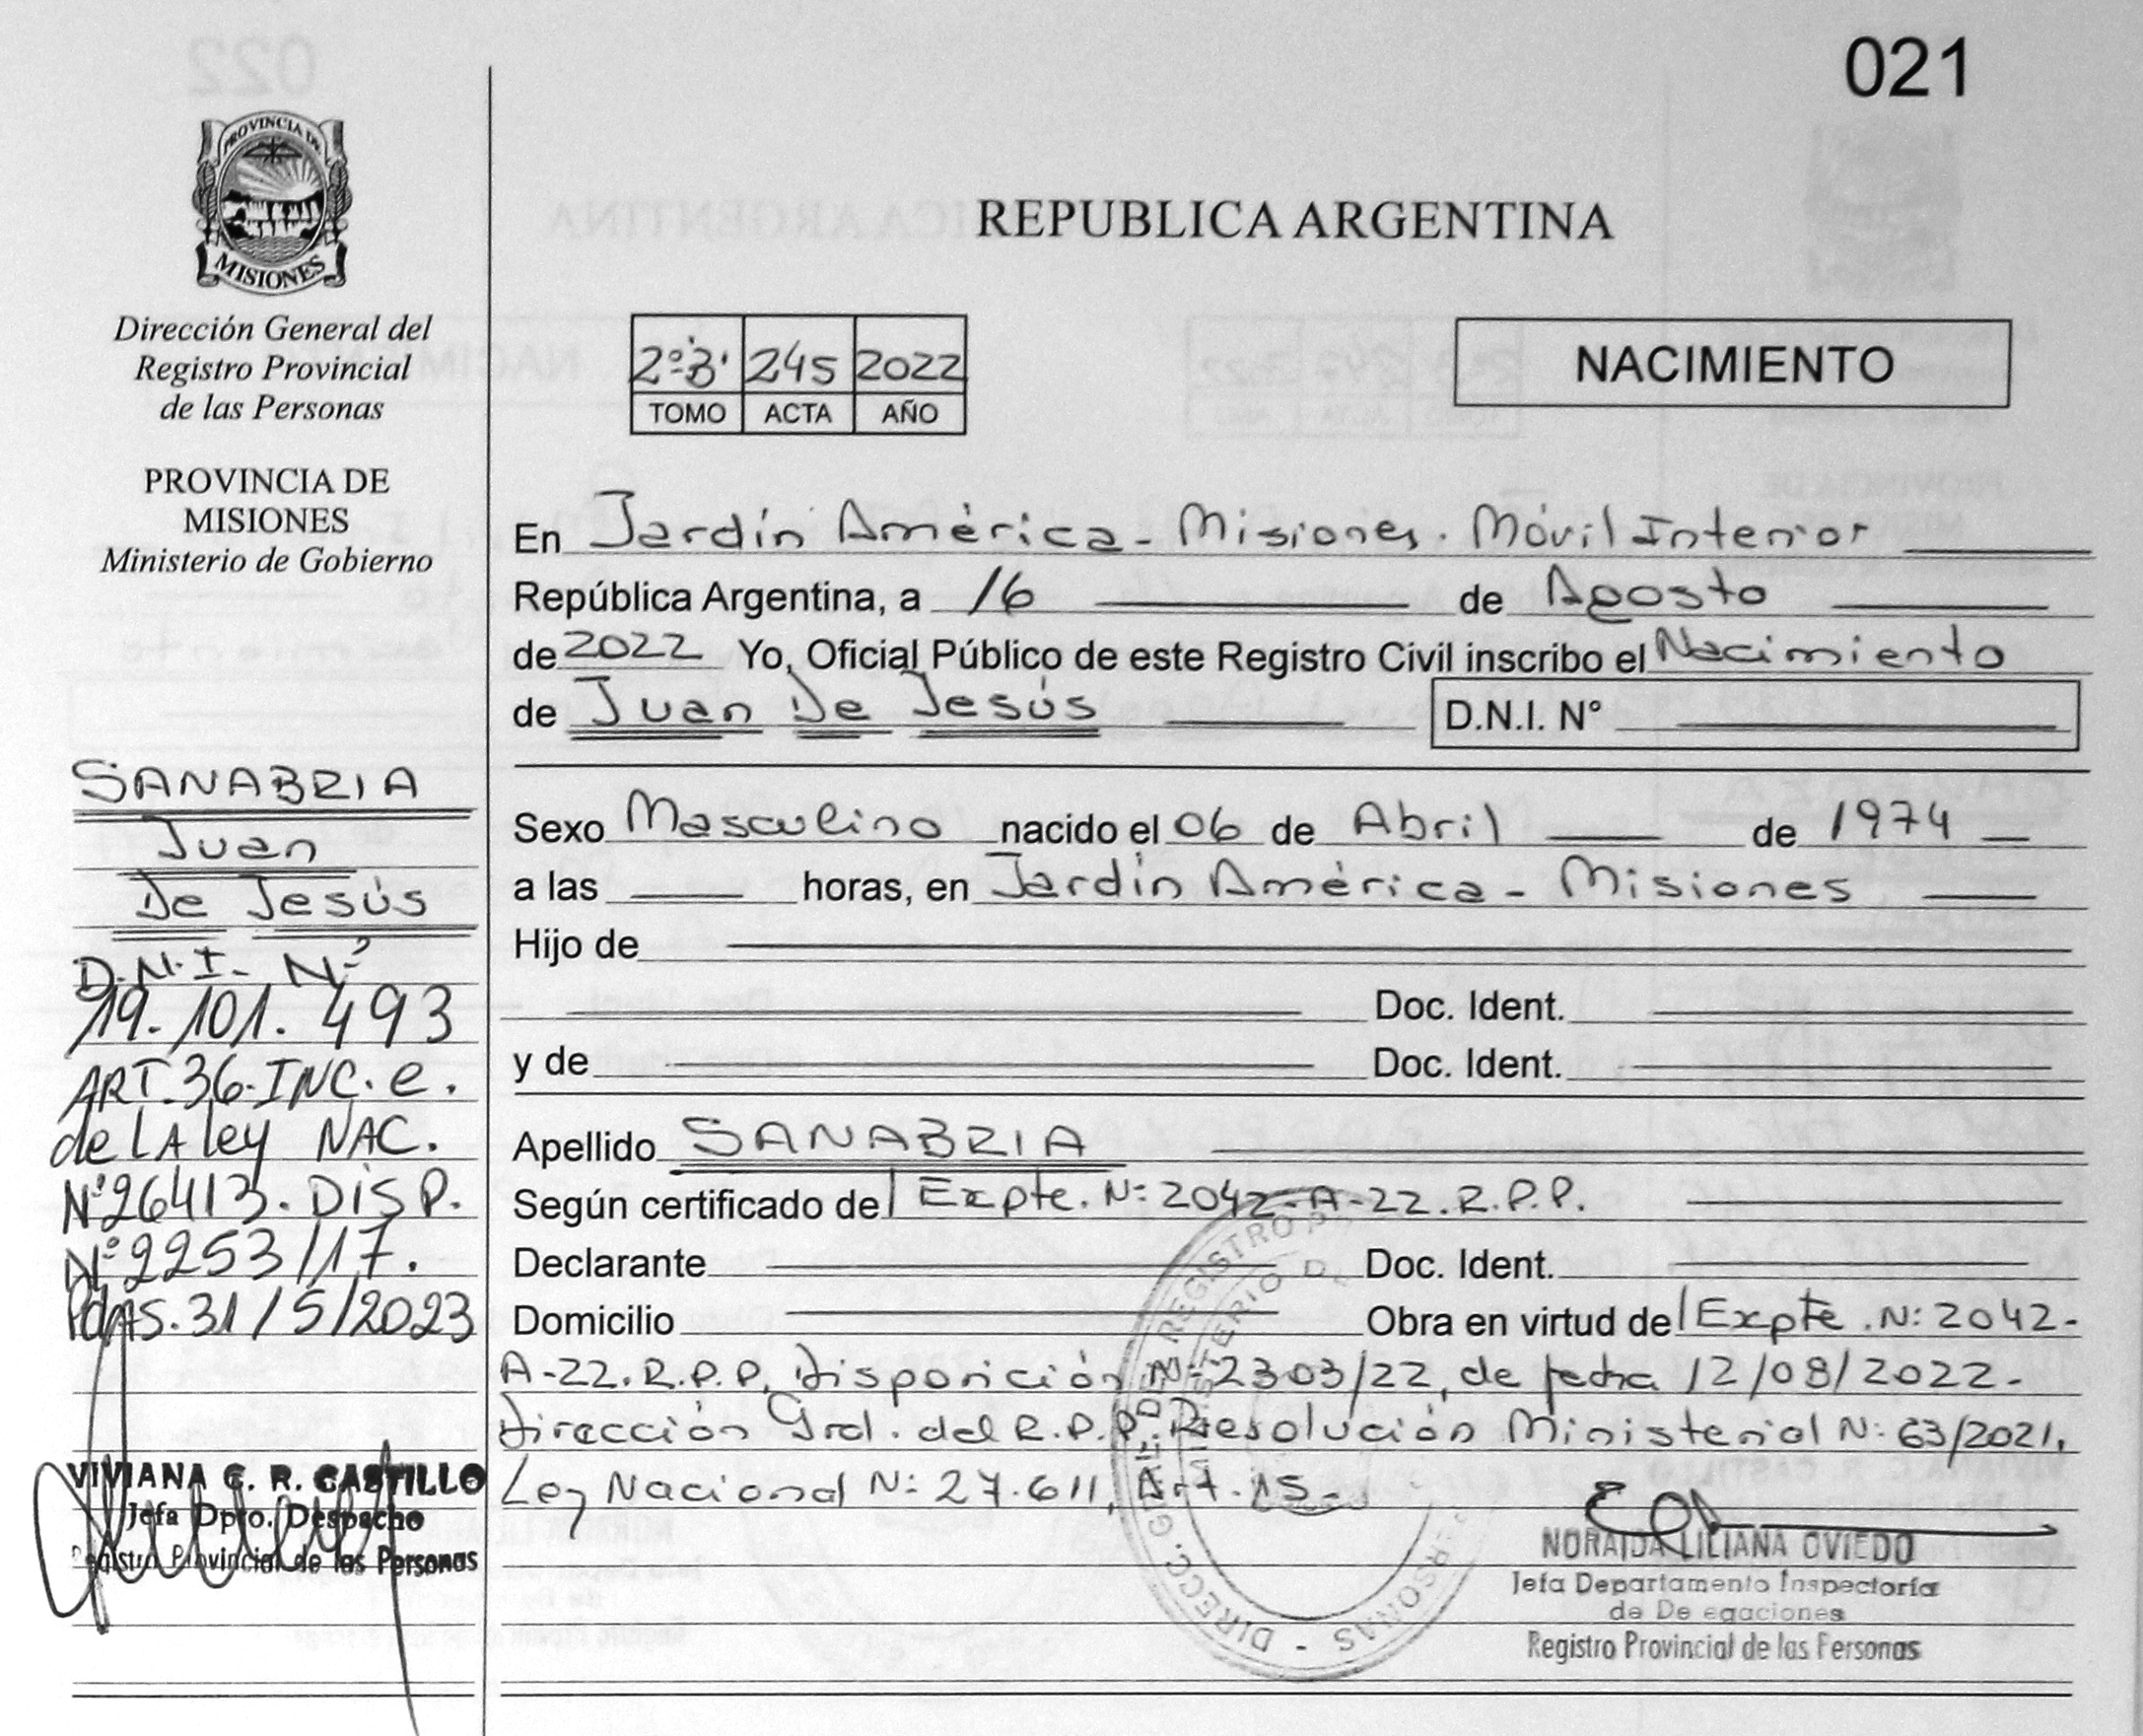 021
PROVINCIA DE
MISIONES
Dirección General del
Registro Provincial
de las Personas
PROVINCIA DE
MISIONES
Ministerio de Gobierno
SANABRIA
Juan
De Jesús
D.N.I. Nº
19.101.493
ART.36.INC.e.
de LA ley NAC.
Nº26413. DISP.
Nº2253/17.
Pdas.31/5/2023
VIVIANA C. R. CASTILLO
Jefa Dpto. Despacho
Registro Provincial de las Personas
REPUBLICA ARGENTINA
2º"B" 245 2022
TOMO ACTA AÑO
NACIMIENTO
En Jardín América - Misiones. Móvil Interior
República Argentina, a 16 de Agosto
de 2022 Yo, Oficial Público de este Registro Civil inscribo el Nacimiento
de Juan De Jesús D.N.I. N°
Sexo Masculino nacido el 06 de Abril de 1974
a las horas, en Jardín América - Misiones
Hijo de
Doc. Ident.
y de Doc. Ident.
Apellido SANABRIA
Según certificado del Expte. Nº 2042-A-22.R.P.P.
Declarante Doc. Ident.
Domicilio Obra en virtud del Expte. Nº 2042-
A-22.R.P.P, Disposición Nº 2303/22, de fecha 12/08/2022.
Dirección Gral. del R.P.P. Resolución Ministerial Nº 63/2021,
Ley Nacional Nº 27.611, Art. 15.
DIRECC. GRAL. DEL REGISTRO
PERSONAS
NORAIDA LILIANA OVIEDO
Jefa Departamento Inspectoría
de De egaciones
Registro Provincial de las Personas